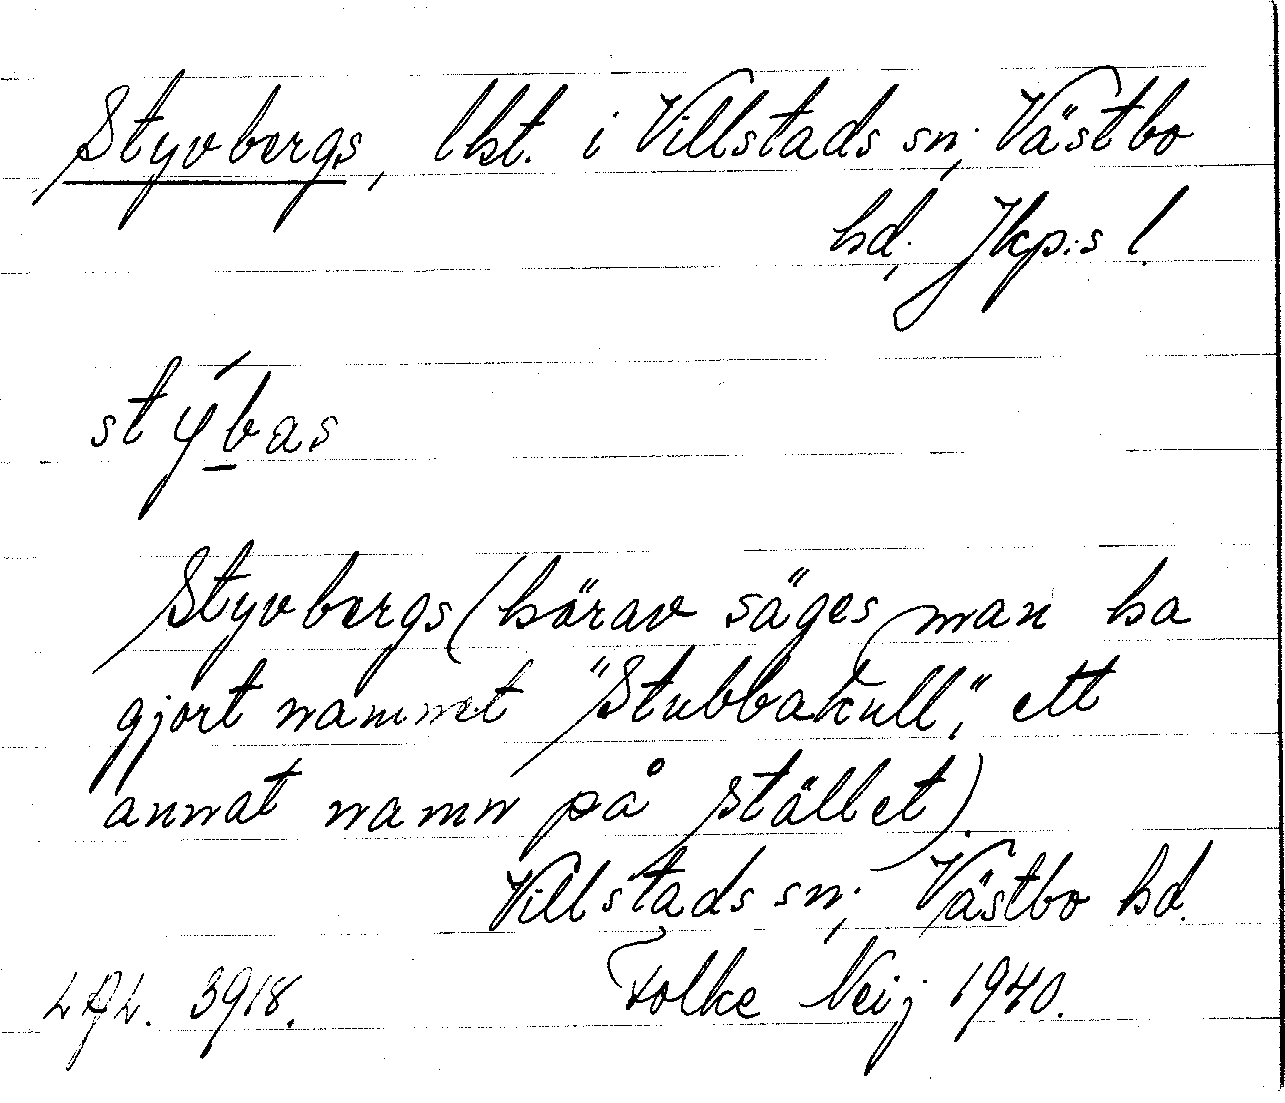 Styvbergs, lht. i Villstads sn, Västbo
hd, Jkp:s l.
stýbas
Styvbergs (härav säges man ha
gjort namnet "Stubbakull", ett
annat namn på stället).
Villstads sn, Västbo hd.
LAL. 3918. Folke Neij 1940.